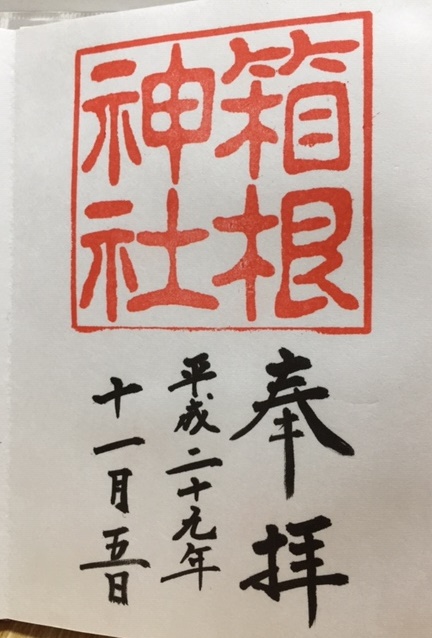 箱根
神社
奉拝
平成二十九年
十一月五日